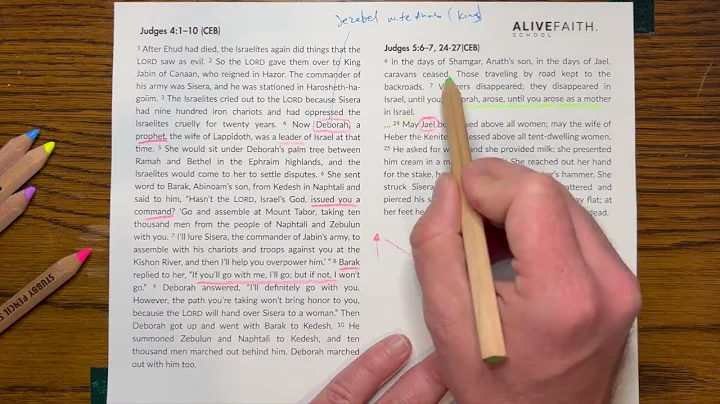 Jezebel
(King)
ALIVEFAITH.
SCHOOL
Judges 4:1–10 (CEB)
1 After Ehud had died, the Israelites again did things that the
LORD saw as evil. 2 So the LORD gave them over to King
Jabin of Canaan, who reigned in Hazor. The commander of
his army was Sisera, and he was stationed in Harosheth-ha-
goiim. 3 The Israelites cried out to the LORD because Sisera
had nine hundred iron chariots and had oppressed the
Israelites cruelly for twenty years. 4 Now Deborah, a
prophet, the wife of Lappidoth, was a leader of Israel at that
time. 5 She would sit under Deborah's palm tree between
Ramah and Bethel in the Ephraim highlands, and the
Israelites would come to her to settle disputes. 6 She sent
word to Barak, Abinoam's son, from Kedesh in Naphtali and
said to him, "Hasn't the LORD, Israel's God, issued you a
command? 'Go and assemble at Mount Tabor, taking ten
thousand men from the people of Naphtali and Zebulun
with you. 7 I'll lure Sisera, the commander of Jabin's army, to
assemble with his chariots and troops against you at the
Kishon River, and then I'll help you overpower him.'" 8 Barak
replied to her, "If you'll go with me, I'll go; but if not, I won't
go." 9 Deborah answered, "I'll definitely go with you.
However, the path you're taking won't bring honor to you,
because the LORD will hand over Sisera to a woman." Then
Deborah got up and went with Barak to Kedesh. 10 He
summoned Zebulun and Naphtali to Kedesh, and ten
thousand men marched out behind him. Deborah marched
out with him too.
Judges 5:6–7, 24-27(CEB)
6 In the days of Shamgar, Anath's son, in the days of Jael,
caravans ceased. Those traveling by road kept to the
backroads. 7 disappeared; they disappeared in
Israel, until you, arose, until you arose as a mother
in Israel.
... 24 May Jael be above all women; may the wife of
Heber the Kenite above all tent-dwelling women.
25 He asked for and she provided milk; she presented
him cream in a She reached out her hand
for the stake, hammer. She
struck Sisera
pierced his flat; at
her feet he dead.
STUBBY